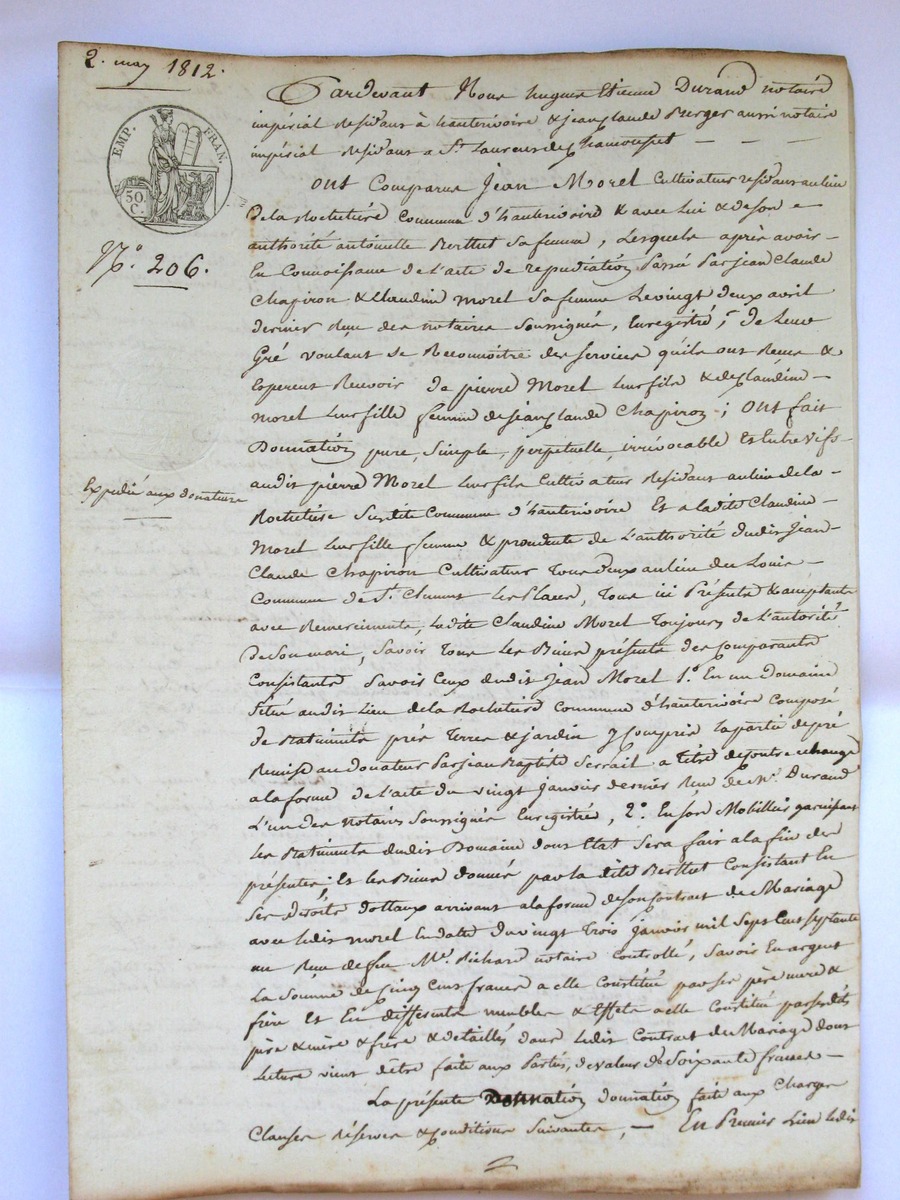 2. may 1812.
EMP. FRAN.
50. C.
N.° 206.
Expedié aux donateurs
Pardevant Nous hugues Etienne Durand notaire
impérial Residant à hauterivoire & jeanclaude Berger aussi notaire
impérial Residant a St. Laurent de Chamousset
ont Comparus Jean Morel Cultivateur residant au lieu
de la Rochetiére Commune d'hauterivoire & avec Lui & de son
authorité antoinette Berthet sa femme, Lesquels après avoir
Eu Connoissance de l'acte de repudiation Passé Par jean Claude
Chapiron & Claudine Morel sa femme Le vingt deux avril
dernier Reçu des notaires Soussignés, Enregistré; de Leur
Gré voulant se Reconnoitre des services qu'ils ont Reçus &
Esperent Recevoir de pierre Morel leur fils & de Claudine
morel leur fille femme de jeanclaude Chapiron; ont fait
Donnation pure, Simple, perpetuelle, irrévocable et Entre vifs
audit pierre Morel leur fils Cultivateur Résidant au lieu de la
Rochetiére Susdite Commune d'hauterivoire Et a ladite Claudine
Morel leur fille femme & procedante de L'authorité dudit Jean
Claude Chapiron Cultivateur Tous deux au lieu du
Commune de St. Clement Les Places, Tous ici Présents & acceptants
avec Remerciments, ladite Claudine Morel Toujours de L'autorité
de Son mari, Savoir Tous les Biens présents des Comparants
Consistants Savoir Ceux dudit jean Morel 1.° En un Domaine
Situé audit Lieu de la Rochetiére Commune d'hauterivoire Composé
de Batiments prés Terres & jardin y Compris la partie de pré
Remise au donateur Par jean Baptiste Serrail a titre de Contre echange
a la forme de l'acte du vingt janvier dernier Reçu de Me. Durand
L'un des notaires Soussignés Enregistrée, 2.° En son Mobillier garnissant
Les Batiments dudit Domaine dont Etat Sera fait a la fin des
présentes; Et les Biens donnés par la dite Berthet Consistant En
Ses droits dottaux arrivant a la forme de son Contrat de Mariage
avec ledit morel En date du vingt Trois janvier mil Sept Cent Septante
un Reçu de feu Me. Richard notaire Controllé, Savoir En argent
La Somme de Cinq Cens francs a elle Constitué par ses père mere &
frère Et En differents meubles & Effets a elle Constitué par sesdits
père & mère & frère & detaillés dans ledit Contrat de Mariage dont
Lecture vient d'être faite aux Parties, de valeur de Soixante francs
La présente donnation faite aux Charges
Clauses Réserves & Conditions Suivantes, En Premier Lieu ledit